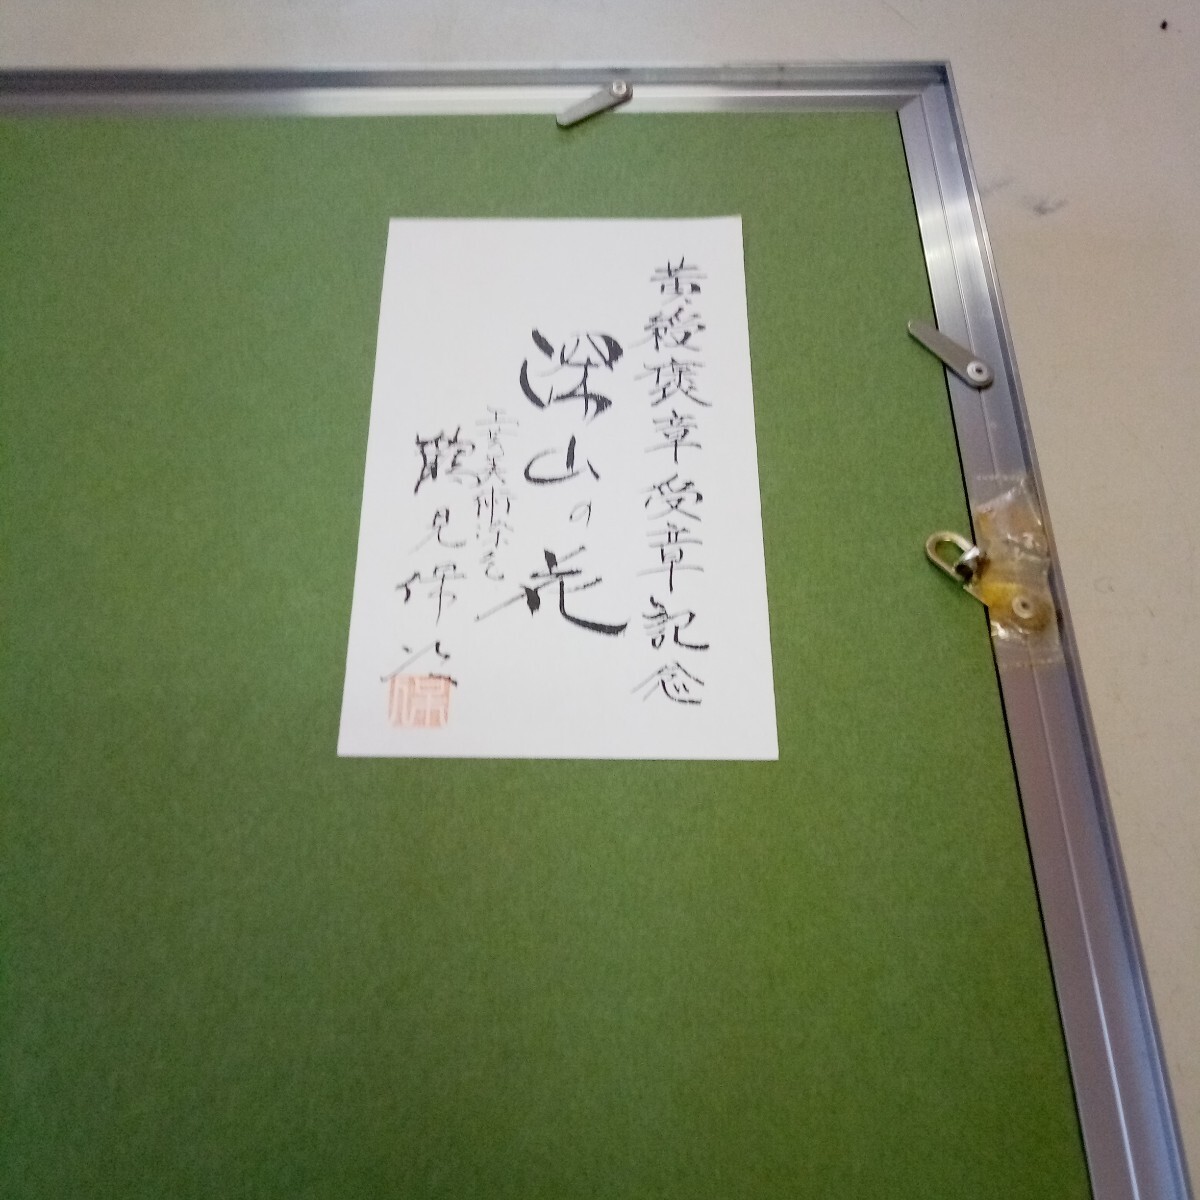 黄綬褒章受章記念
深山の花
工芸美術
鶴見保次
保